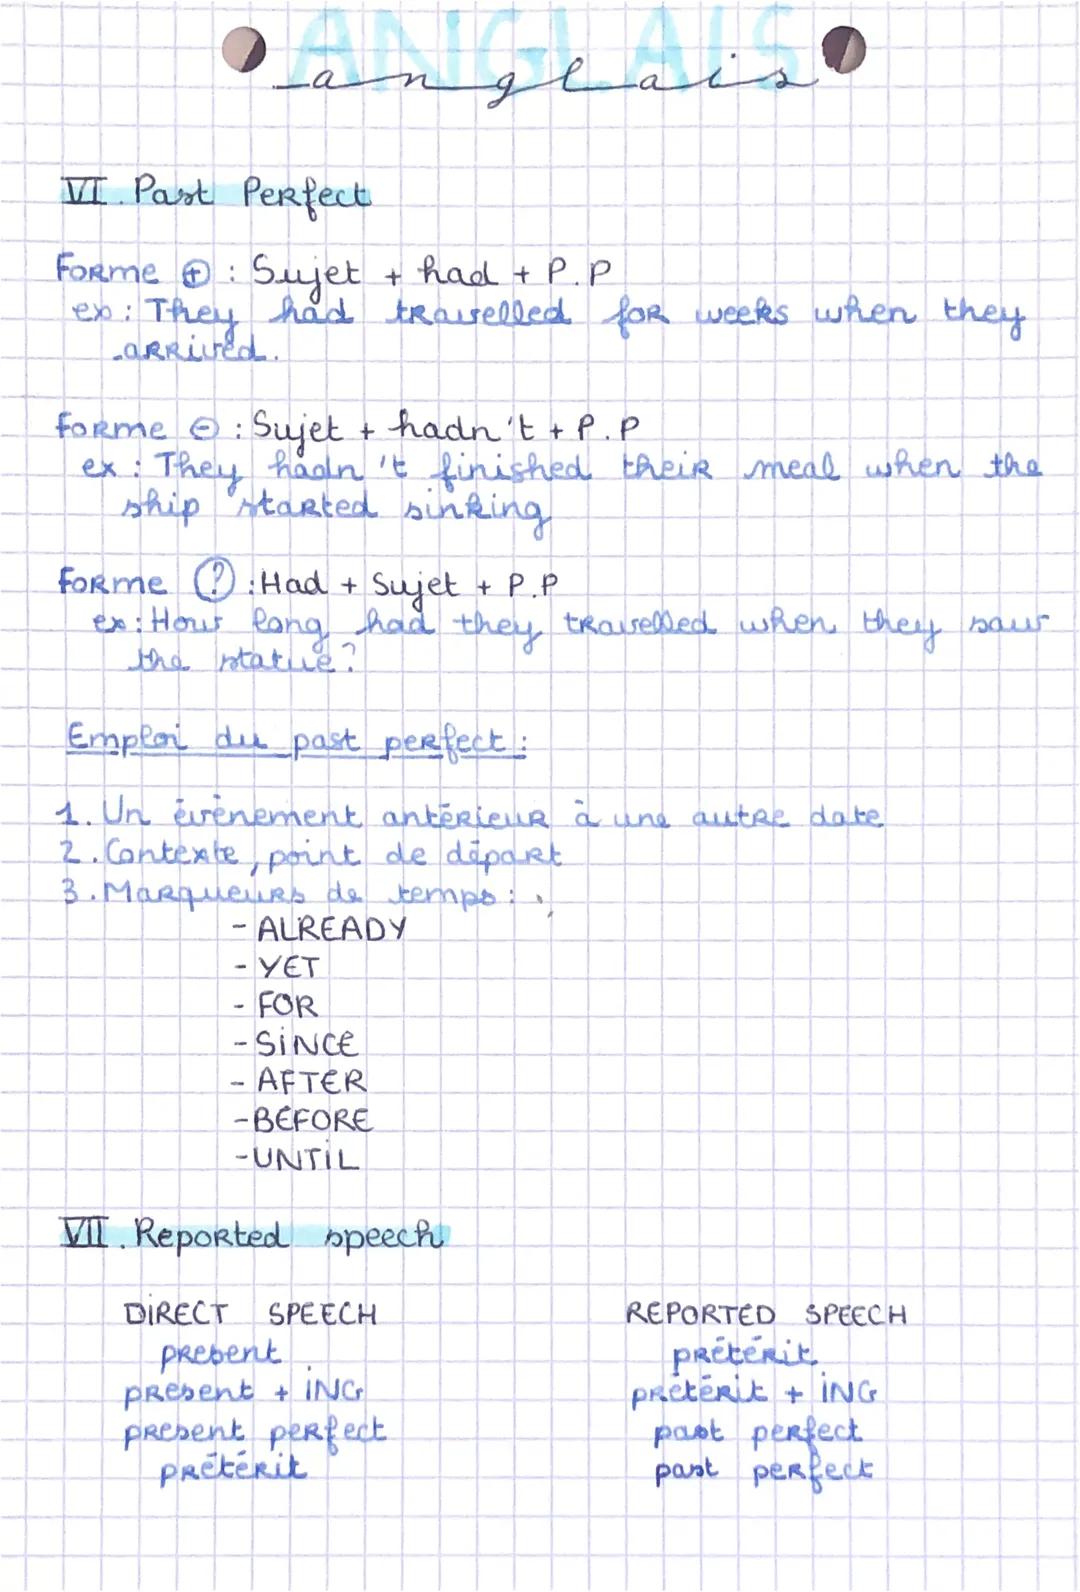 ANGLAIS
anglais
VI. Past Perfect
Forme ⊕ : Sujet + had + P.P
ex : They had travelled for weeks when they
arrived.
Forme ⊖ : Sujet + hadn't + P.P
ex : They hadn't finished their meal when the
ship started sinking
Forme ? : Had + Sujet + P.P
ex : How long had they travelled when they saw
the statue ?
Emploi du past perfect :
1. Un évènement antérieur à une autre date
2. Contexte, point de départ
3. Marqueurs de temps :
- ALREADY
- YET
- FOR
- SINCE
- AFTER
- BEFORE
- UNTIL
VII. Reported speech
DIRECT SPEECH REPORTED SPEECH
present prétérit
present + ING prétérit + ING
present perfect past perfect
prétérit past perfect